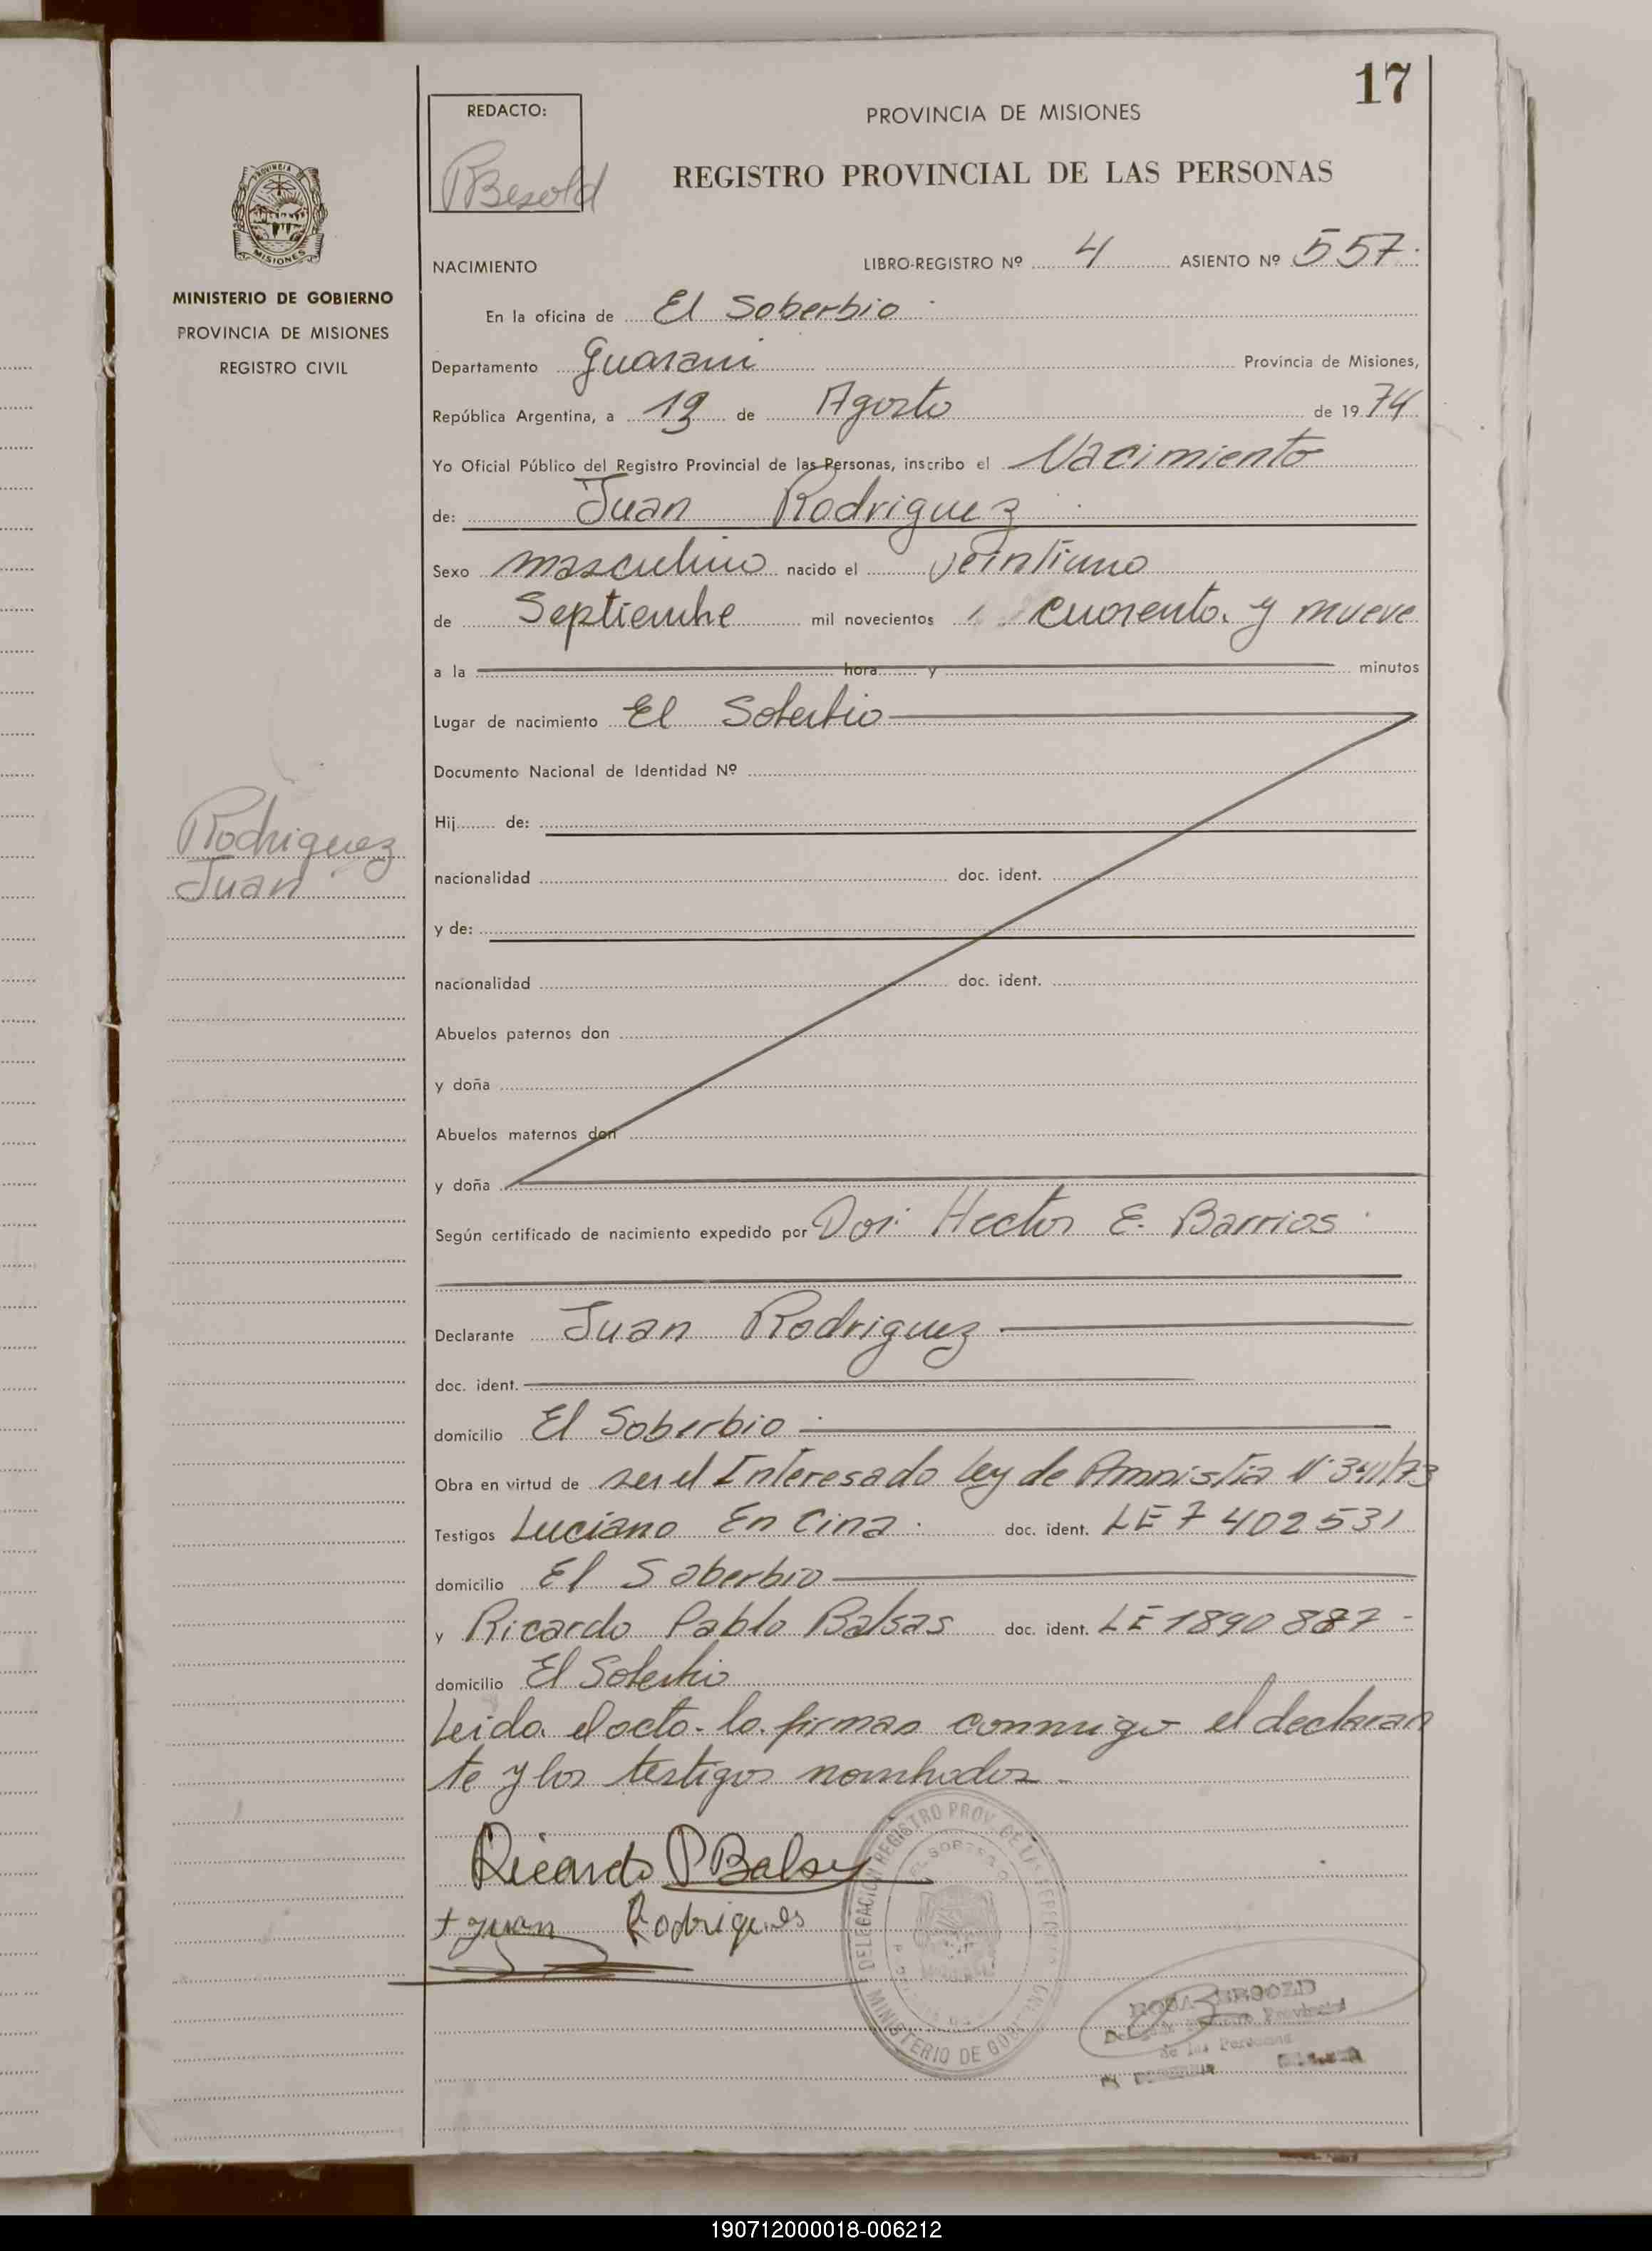 17
REDACTO:
PBesold
PROVINCIA DE MISIONES
REGISTRO PROVINCIAL DE LAS PERSONAS
PROVINCIA DE
MISIONES
MINISTERIO DE GOBIERNO
PROVINCIA DE MISIONES
REGISTRO CIVIL
NACIMIENTO LIBRO-REGISTRO Nº 4 ASIENTO Nº 557.
En la oficina de El Soberbio
Departamento Guarani Provincia de Misiones,
República Argentina, a 19 de Agosto de 1974
Yo Oficial Público del Registro Provincial de las Personas, inscribo el Nacimiento
de: Juan Rodriguez
Sexo masculino nacido el veintiuno
de Septiembre mil novecientos cuarenta y nueve
a la hora y minutos
Lugar de nacimiento El Soberbio
Documento Nacional de Identidad Nº
Hij de:
nacionalidad doc. ident.
y de:
nacionalidad doc. ident.
Abuelos paternos don
y doña
Abuelos maternos don
y doña
Rodriguez
Juan
Según certificado de nacimiento expedido por Dor. Hector E. Barrios
Declarante Juan Rodriguez
doc. ident.
domicilio El Soberbio
Obra en virtud de ser el Interesado Ley de Amnistia Nº 341/73
Testigos Luciano En Cina. doc. ident. LE 7 402531
domicilio El Soberbio
y Ricardo Pablo Balsas doc. ident. LE 1890 887 -
domicilio El Soberbio
Leida el acta. la firman conmigo el declaran
te y los testigos nombrados
Ricardo PBalsy
+ Juan Rodrigues
DELEGACION REGISTRO PROV. DE LAS PERSONAS
EL SOBERBIO
MINISTERIO DE GOBIERNO
Provincial
de las Personas
190712000018-006212